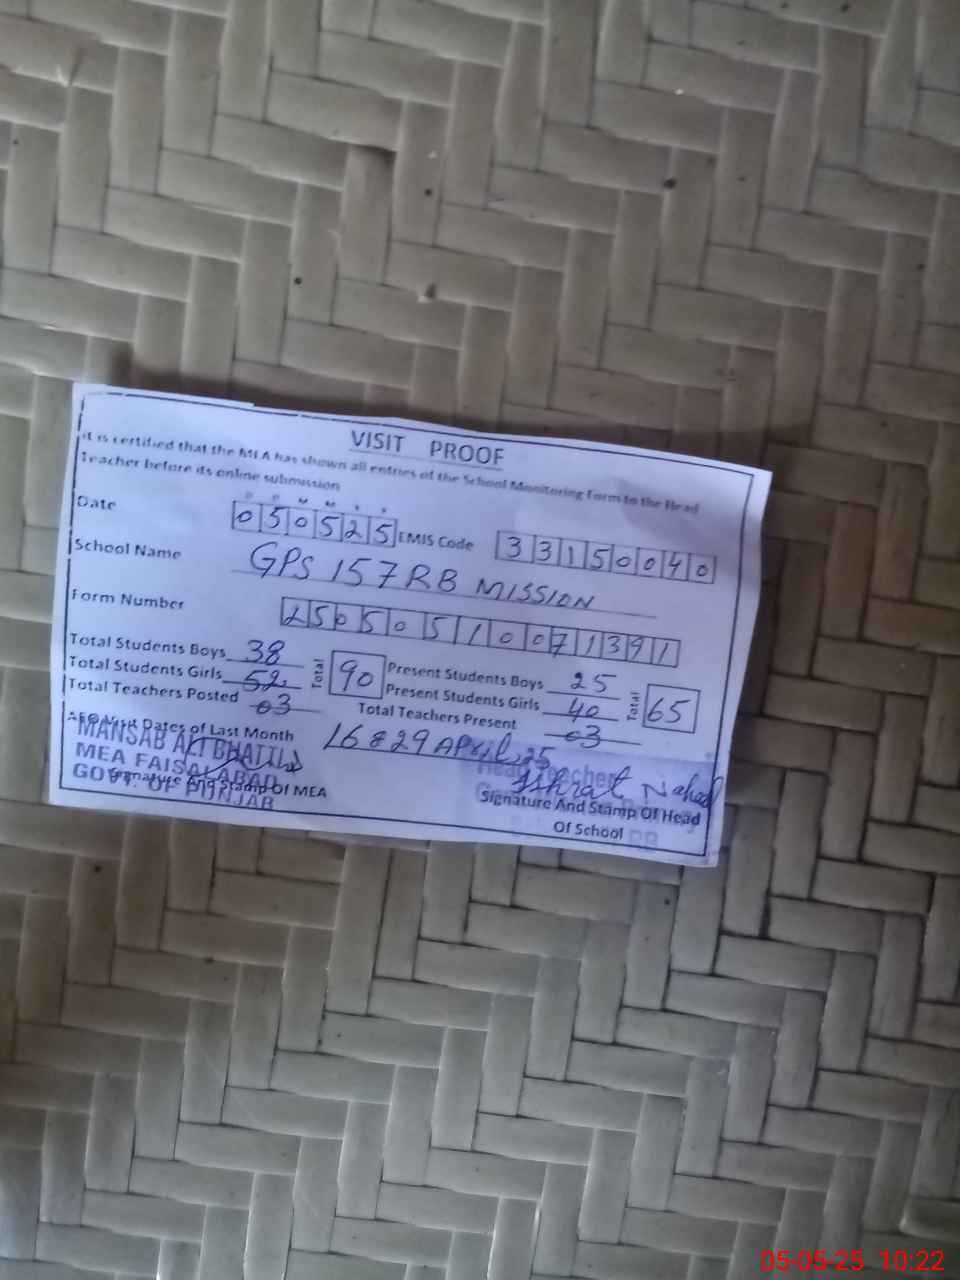 VISIT PROOF
It is certified that the MEA has shown all entries of the School Monitoring Form to the Head
Teacher before its online submission
D D M M Y Y
Date 050525 EMIS Code 33150040
School Name GPS 157 RB MISSION
Form Number 25050510071391
Total Students Boys 38 Total 90 Present Students Boys 25 Total 65
Total Students Girls 52 Present Students Girls 40
Total Teachers Posted 03 Total Teachers Present 03
AEO Visit Dates of Last Month 16 & 29 April, 25
MANSAB ALI BHATTI
MEA FAISALABAD
GOVT. OF PUNJAB
Signature And Stamp Of MEA
Head Teacher
Nahed
Signature And Stamp Of Head
Of School
RB
05-05-25 10:22